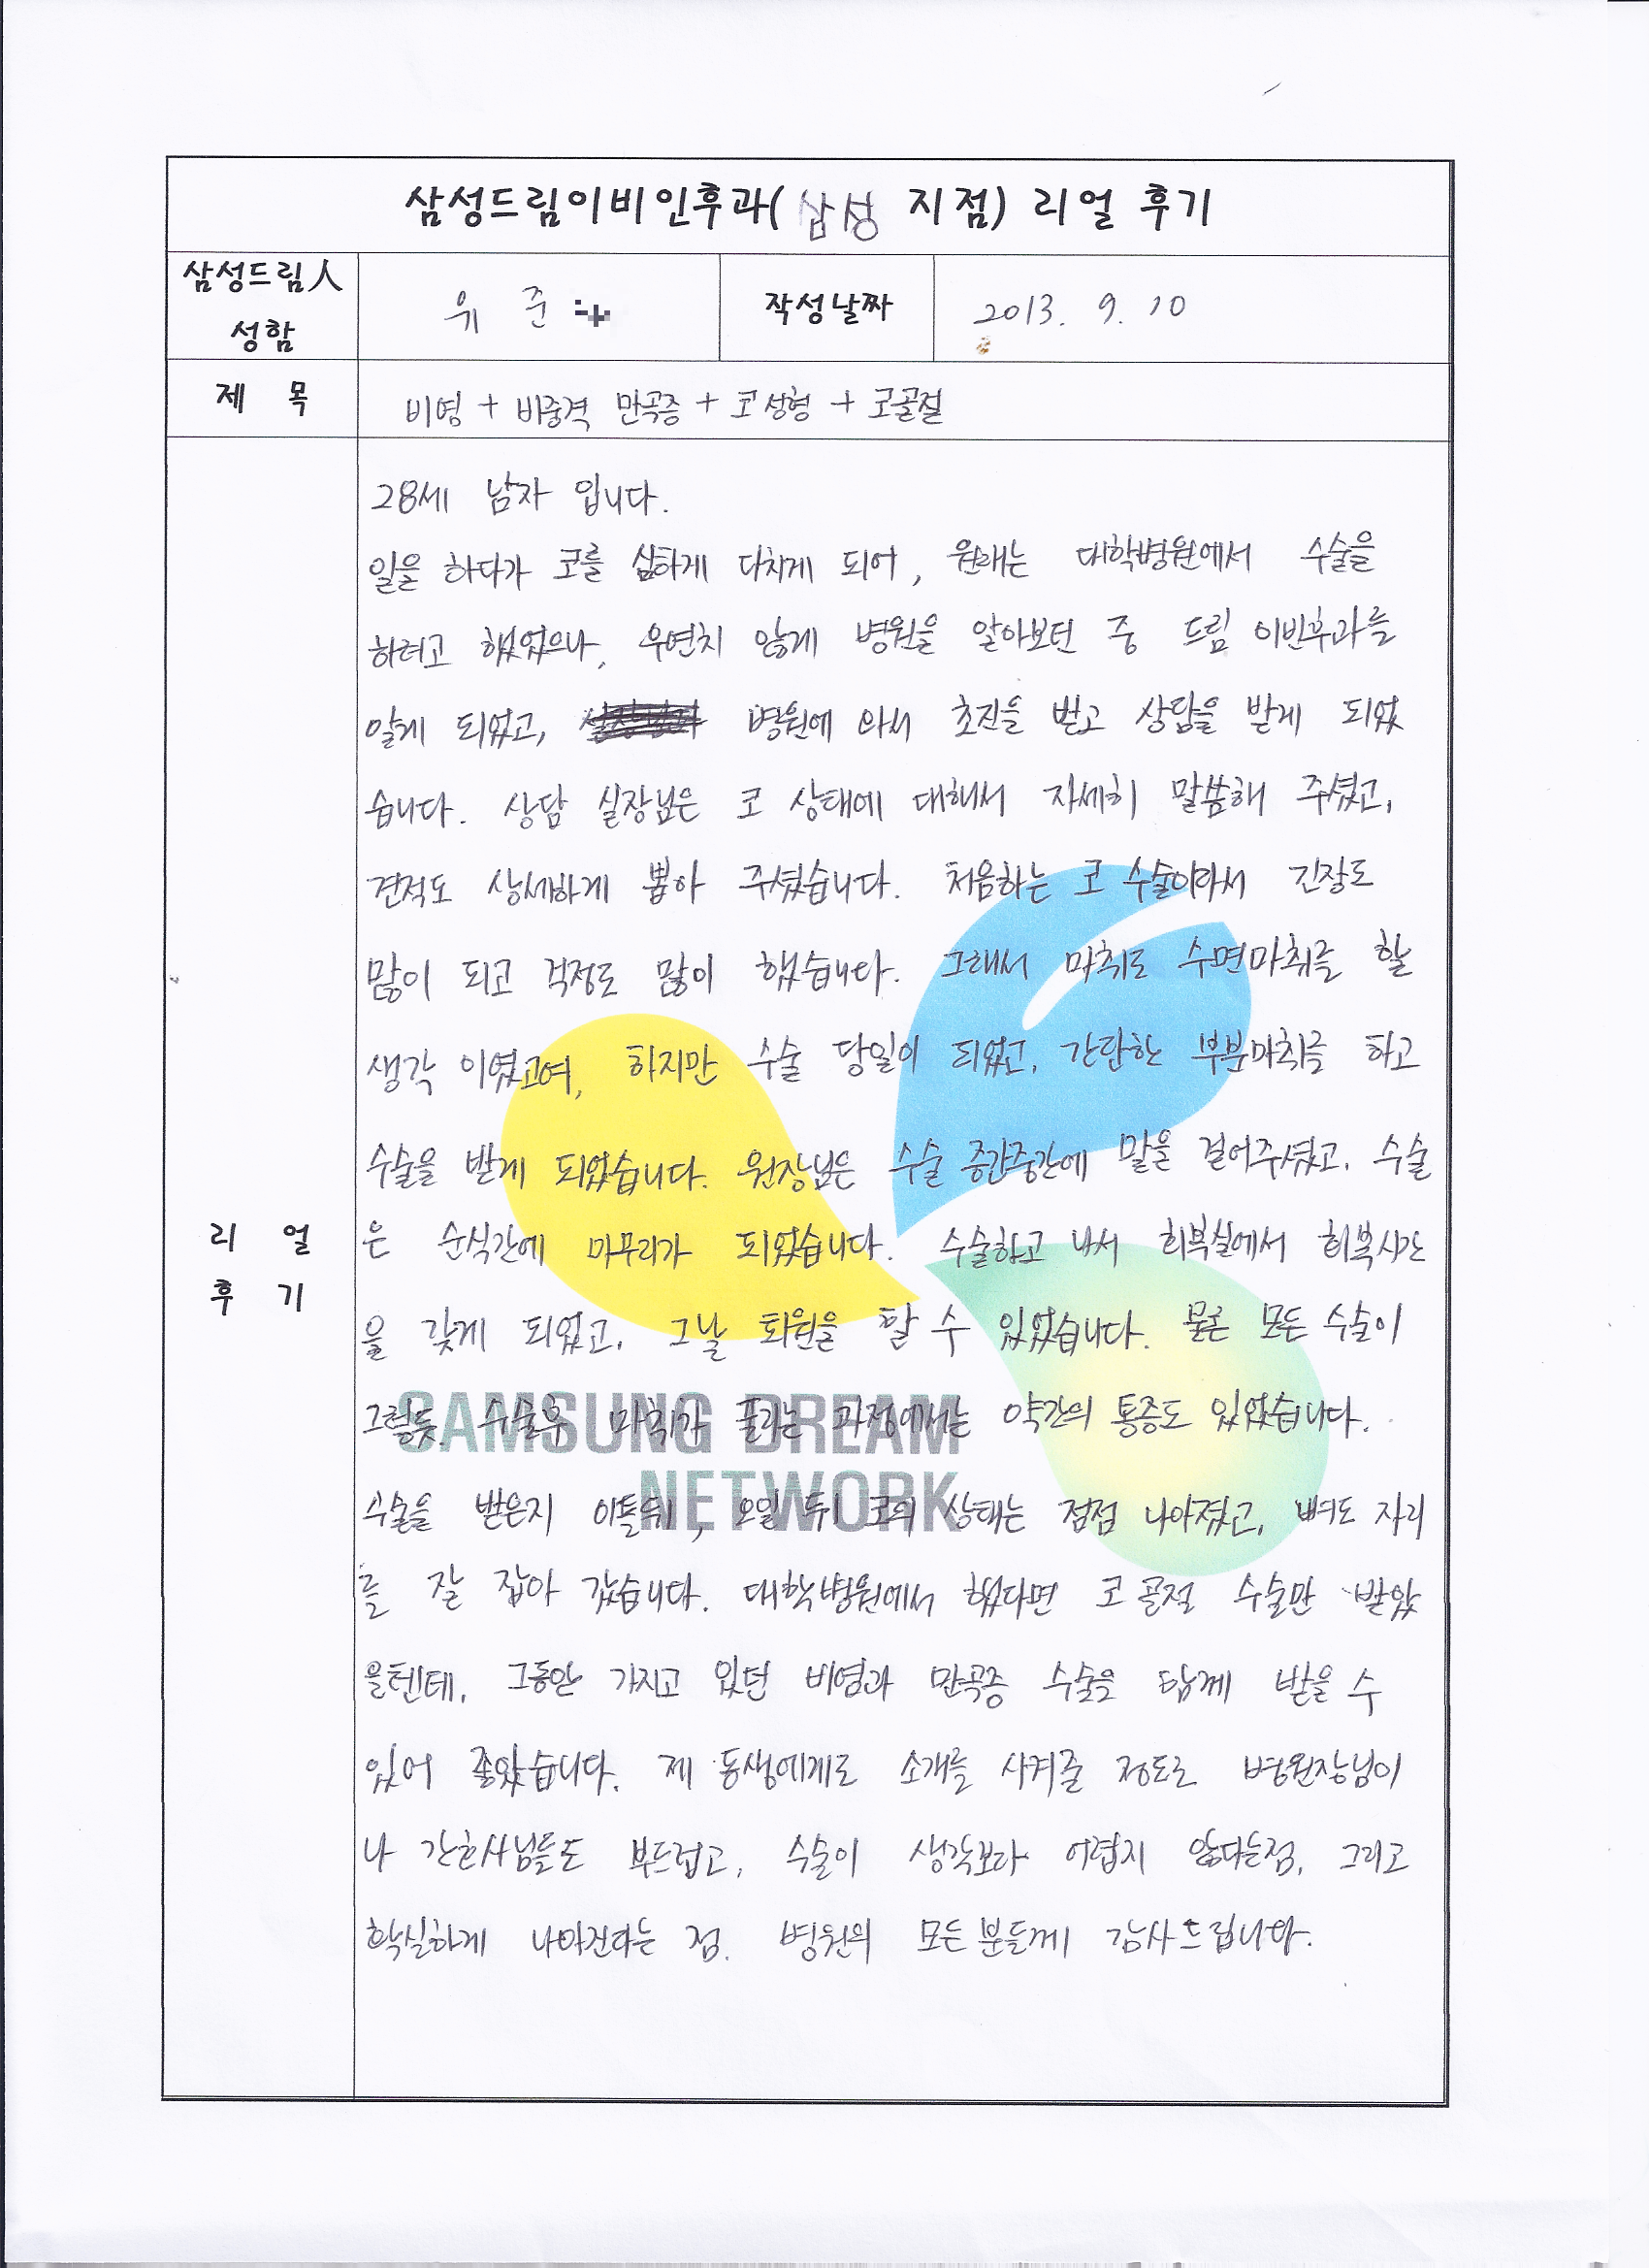 삼성드림이비인후과( 삼성 지점) 리얼 후기
삼성드림人
성함
유 준
작성날짜
2013. 9. 10
제 목
비염 + 비중격 만곡증 + 코성형 + 코골절
28세 남자 입니다.
일을 하다가 코를 심하게 다치게 되어, 원래는 대학병원에서 수술을
하려고 했었으나, 우연치 않게 병원을 알아보던 중 드림 이빈후과를
알게 되었고, 병원에 와서 초진을 받고 상담을 받게 되었
습니다. 상담 실장님은 코 상태에 대해서 자세히 말씀해 주셨고,
견적도 상세하게 뽑아 주셨습니다. 처음하는 코 수술이라서 긴장도
많이 되고 걱정도 많이 했습니다. 그래서 마취도 수면마취를 할
생각 이였고여, 하지만 수술 당일이 되었고, 간단한 부분마취를 하고
수술을 받게 되었습니다. 원장님은 수술 중간중간에 말을 걸어주셨고, 수술
리 얼
후 기
은 순식간에 마무리가 되었습니다. 수술하고 나서 회복실에서 회복시간
을 갖게 되었고, 그날 퇴원을 할 수 있었습니다. 물론 모든 수술이
그렇듯, 수술후 마취가 풀리는 과정에서는 약간의 통증도 있었습니다.
SAMSUNG DREAM
NETWORK
수술을 받은지 이틀뒤, 오일 뒤 코의 상태는 점점 나아졌고, 뼈도 자리
를 잘 잡아 갔습니다. 대학병원에서 했다면 코 골절 수술만 받았
을텐데, 그동안 가지고 있던 비염과 만곡증 수술을 함께 받을 수
있어 좋았습니다. 제 동생에게도 소개를 시켜줄 정도로 병원장님이
나 간호사님들도 부드럽고, 수술이 생각보다 어렵지 않다는점, 그리고
확실하게 나아진다는 점. 병원의 모든 분들께 감사드립니다.